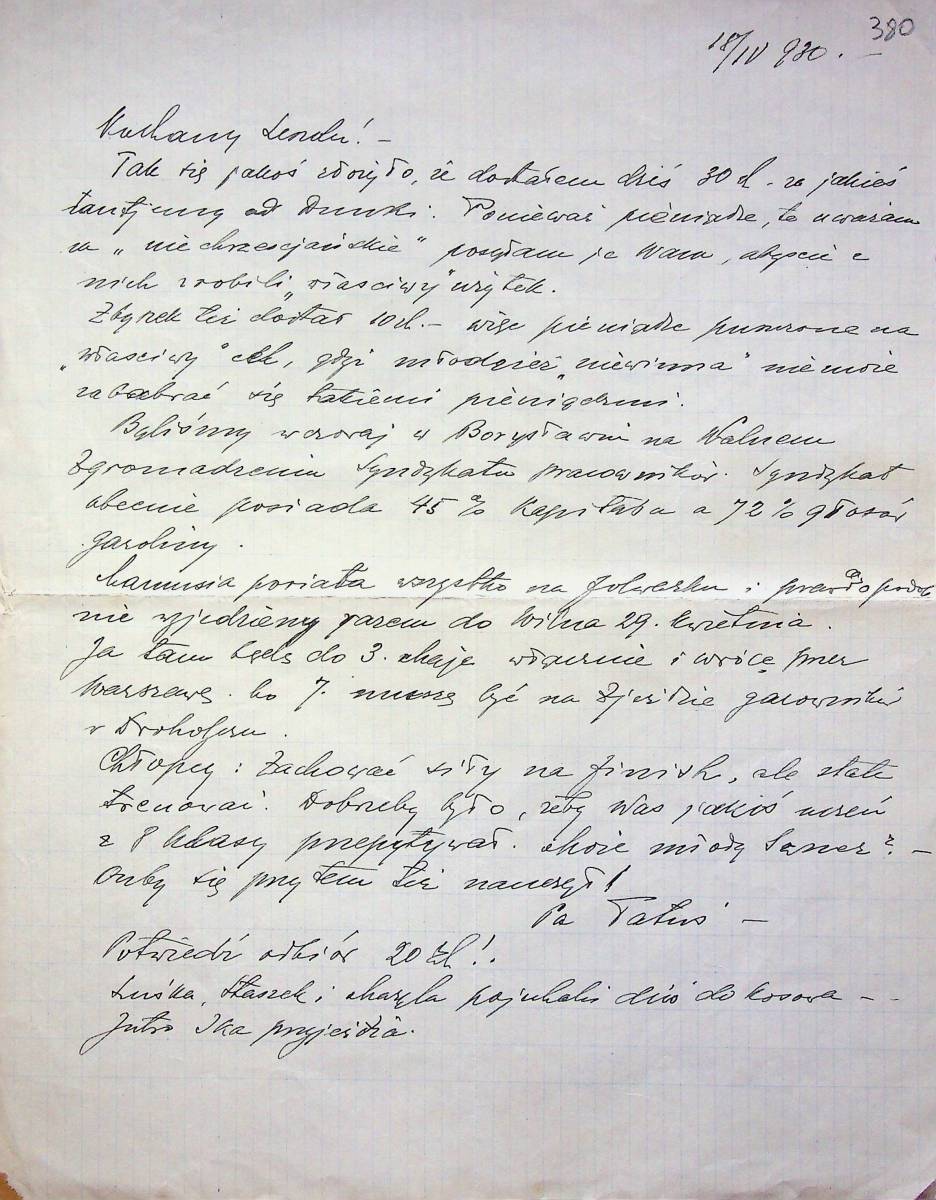 380
18/IV 930. —
Kochany Leszku! —
Tak się jakoś złożyło, że dostałem dziś 30 zł. za jakieś
tantjemy od Dunki. Ponieważ pieniądze, te uważam
za „niechrzescjańskie" posyłam je Wam, abyście z
nich zrobili „właściwy" użytek.
Zbyszek też dostał 10 zł. — więc pieniądze puszczone na
„właściwy" cel, gdyż młodzież „niewinna" nie może
zababrać się takiemi pieniądzmi.
Byliśmy wczoraj w Borysławiu na Walnem
Zgromadzeniu Syndykatu pracowników. Syndykat
obecnie posiada 45 % Kapitału a 72 % głosów
gazoliny.
Mamusia posiała wszystko na folwarku i prawdopodob
nie wyjedziemy razem do Wilna 29. kwietnia.
Ja tam będę do 3. maja włącznie i wrócę przez
Warszawę. bo 7. muszę być na Zjeździe gazowników
w Drohobyczu.
Chłopcy: Zachować siły na finish, ale stale
trenować. Dobrzeby było, żeby Was jakiś uczeń
z 8 klasy przepytywał. Może młody? —
Onby się przytem też nauczył!
Pa Tatuś —
Potwierdź odbiór 20 zł!.
Luśka, Staszek i pojechali dziś do Kosowa — -
Jutro Ika przyjeżdża.